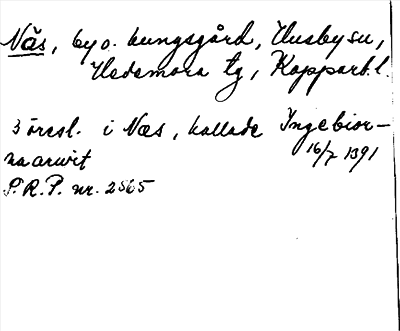 Näs, by o. kungsgård, Husby sn,
Hedemora tg, Kopparb. l.
3 öresl. i Næs, kallade Ingebior-
naarwit 16/7 1391
P.R.P. nr. 2565